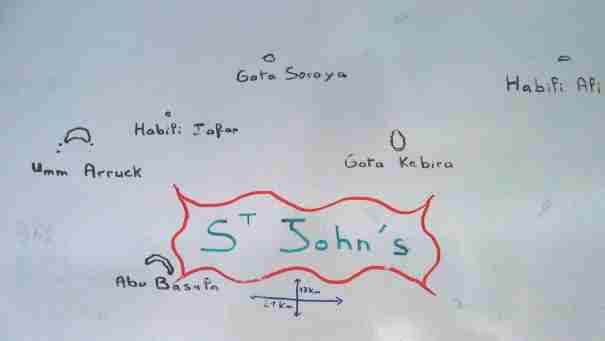 Gota Soraya
Habili Ali
Habili Jafar
Umm Arruck
Gota Kebira
ST John's
Abu Basala